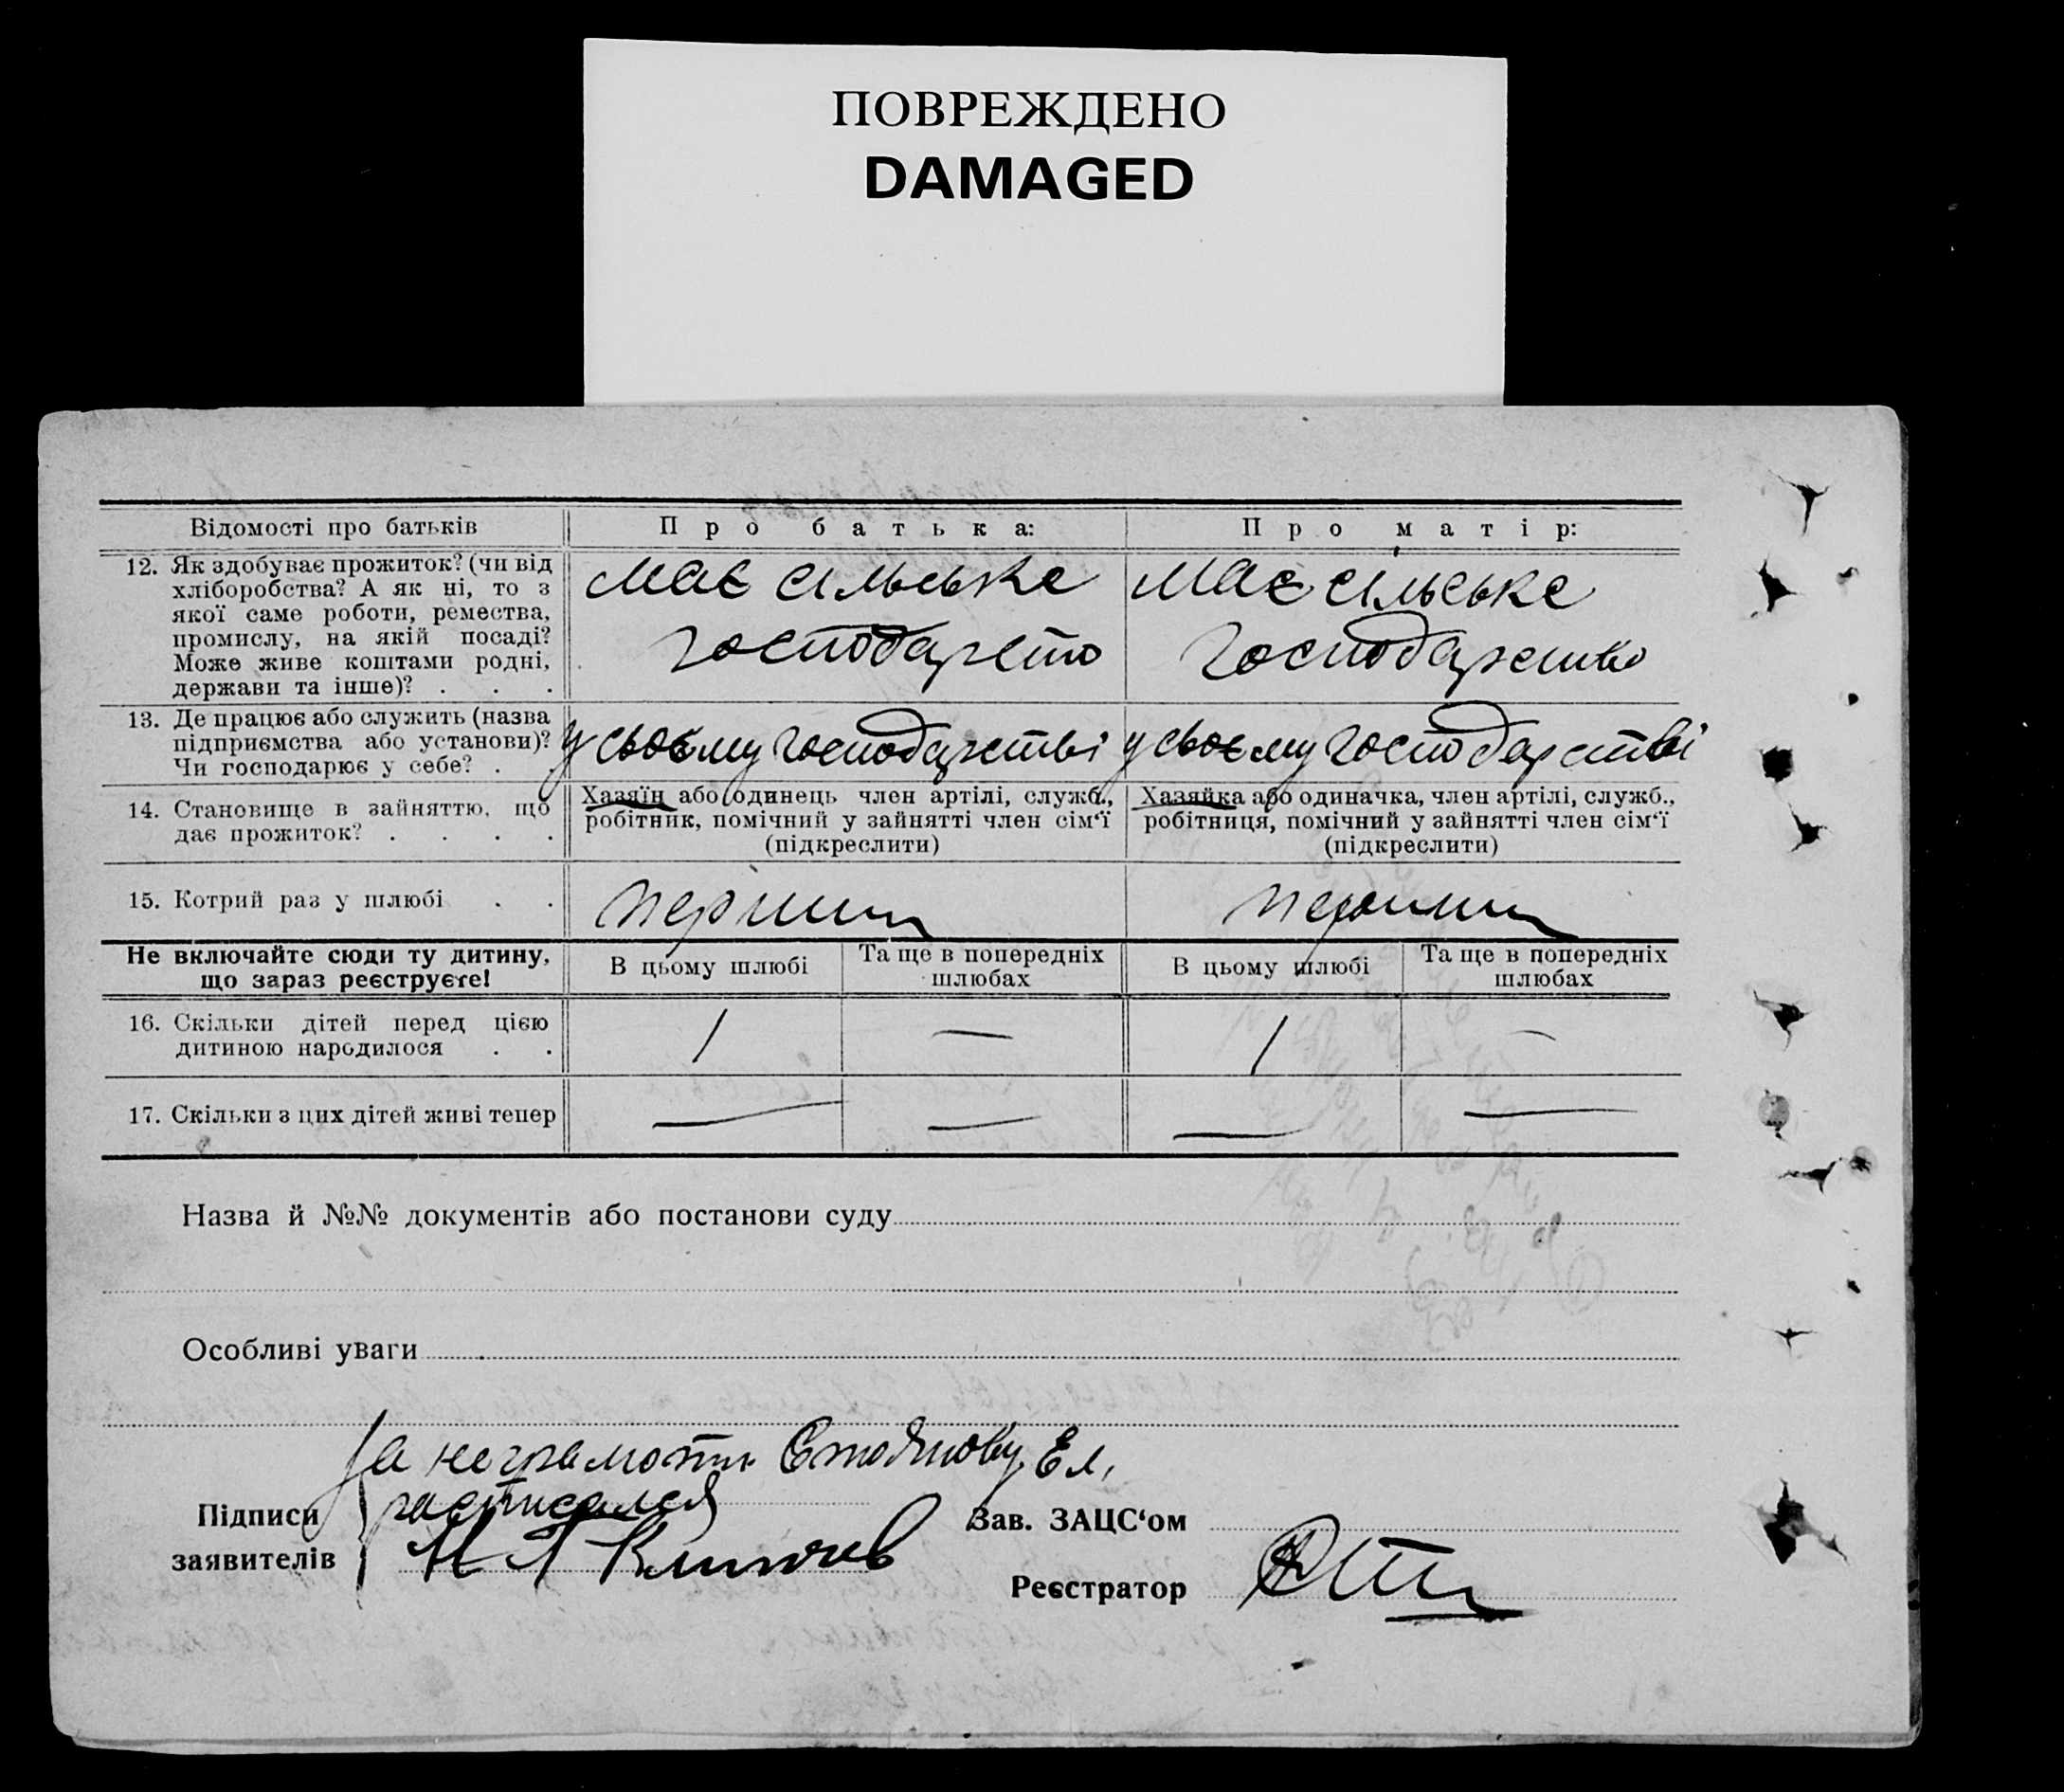 ПОВРЕЖДЕНО
DAMAGED
Відомості про батьків
Про батька:
Про матір:
12. Як здобуває прожиток? (чи від
хліборобства? А як ні, то з
якої саме роботи, ремества,
промислу, на якій посаді?
Може живе коштами родні,
держави та інше)? . . .
Має сільське
господарсто
Має сільське
господарство
13. Де працює або служить (назва
підприємства або установи)?
Чи господарює у себе? .
у своєму господарстві
у своєму господарстві
14. Становище в зайняттю, що
дає прожиток? . . . .
Хазяїн або одинець член артілі, служб.,
робітник, помічний у зайнятті член сім‘ї
(підкреслити)
Хазяйка або одиначка, член артілі, служб.,
робітниця, помічний у зайнятті член сім‘ї
(підкреслити)
15. Котрий раз у шлюбі . .
перший
перший
Не включайте сюди ту дитину,
що зараз реєструєте!
В цьому шлюбі
Та ще в попередніх
шлюбах
В цьому шлюбі
Та ще в попередніх
шлюбах
16. Скільки дітей перед цією
дитиною народилося . .
1
—
1
—
17. Скільки з цих дітей живі тепер
—
—
—
—
Назва й №№ документів або постанови суду
Особливі уваги
За неграмотн Стоянову Ел,
Підписи
заявителів
расписался
Зав. ЗАЦС‘ом
Реєстратор